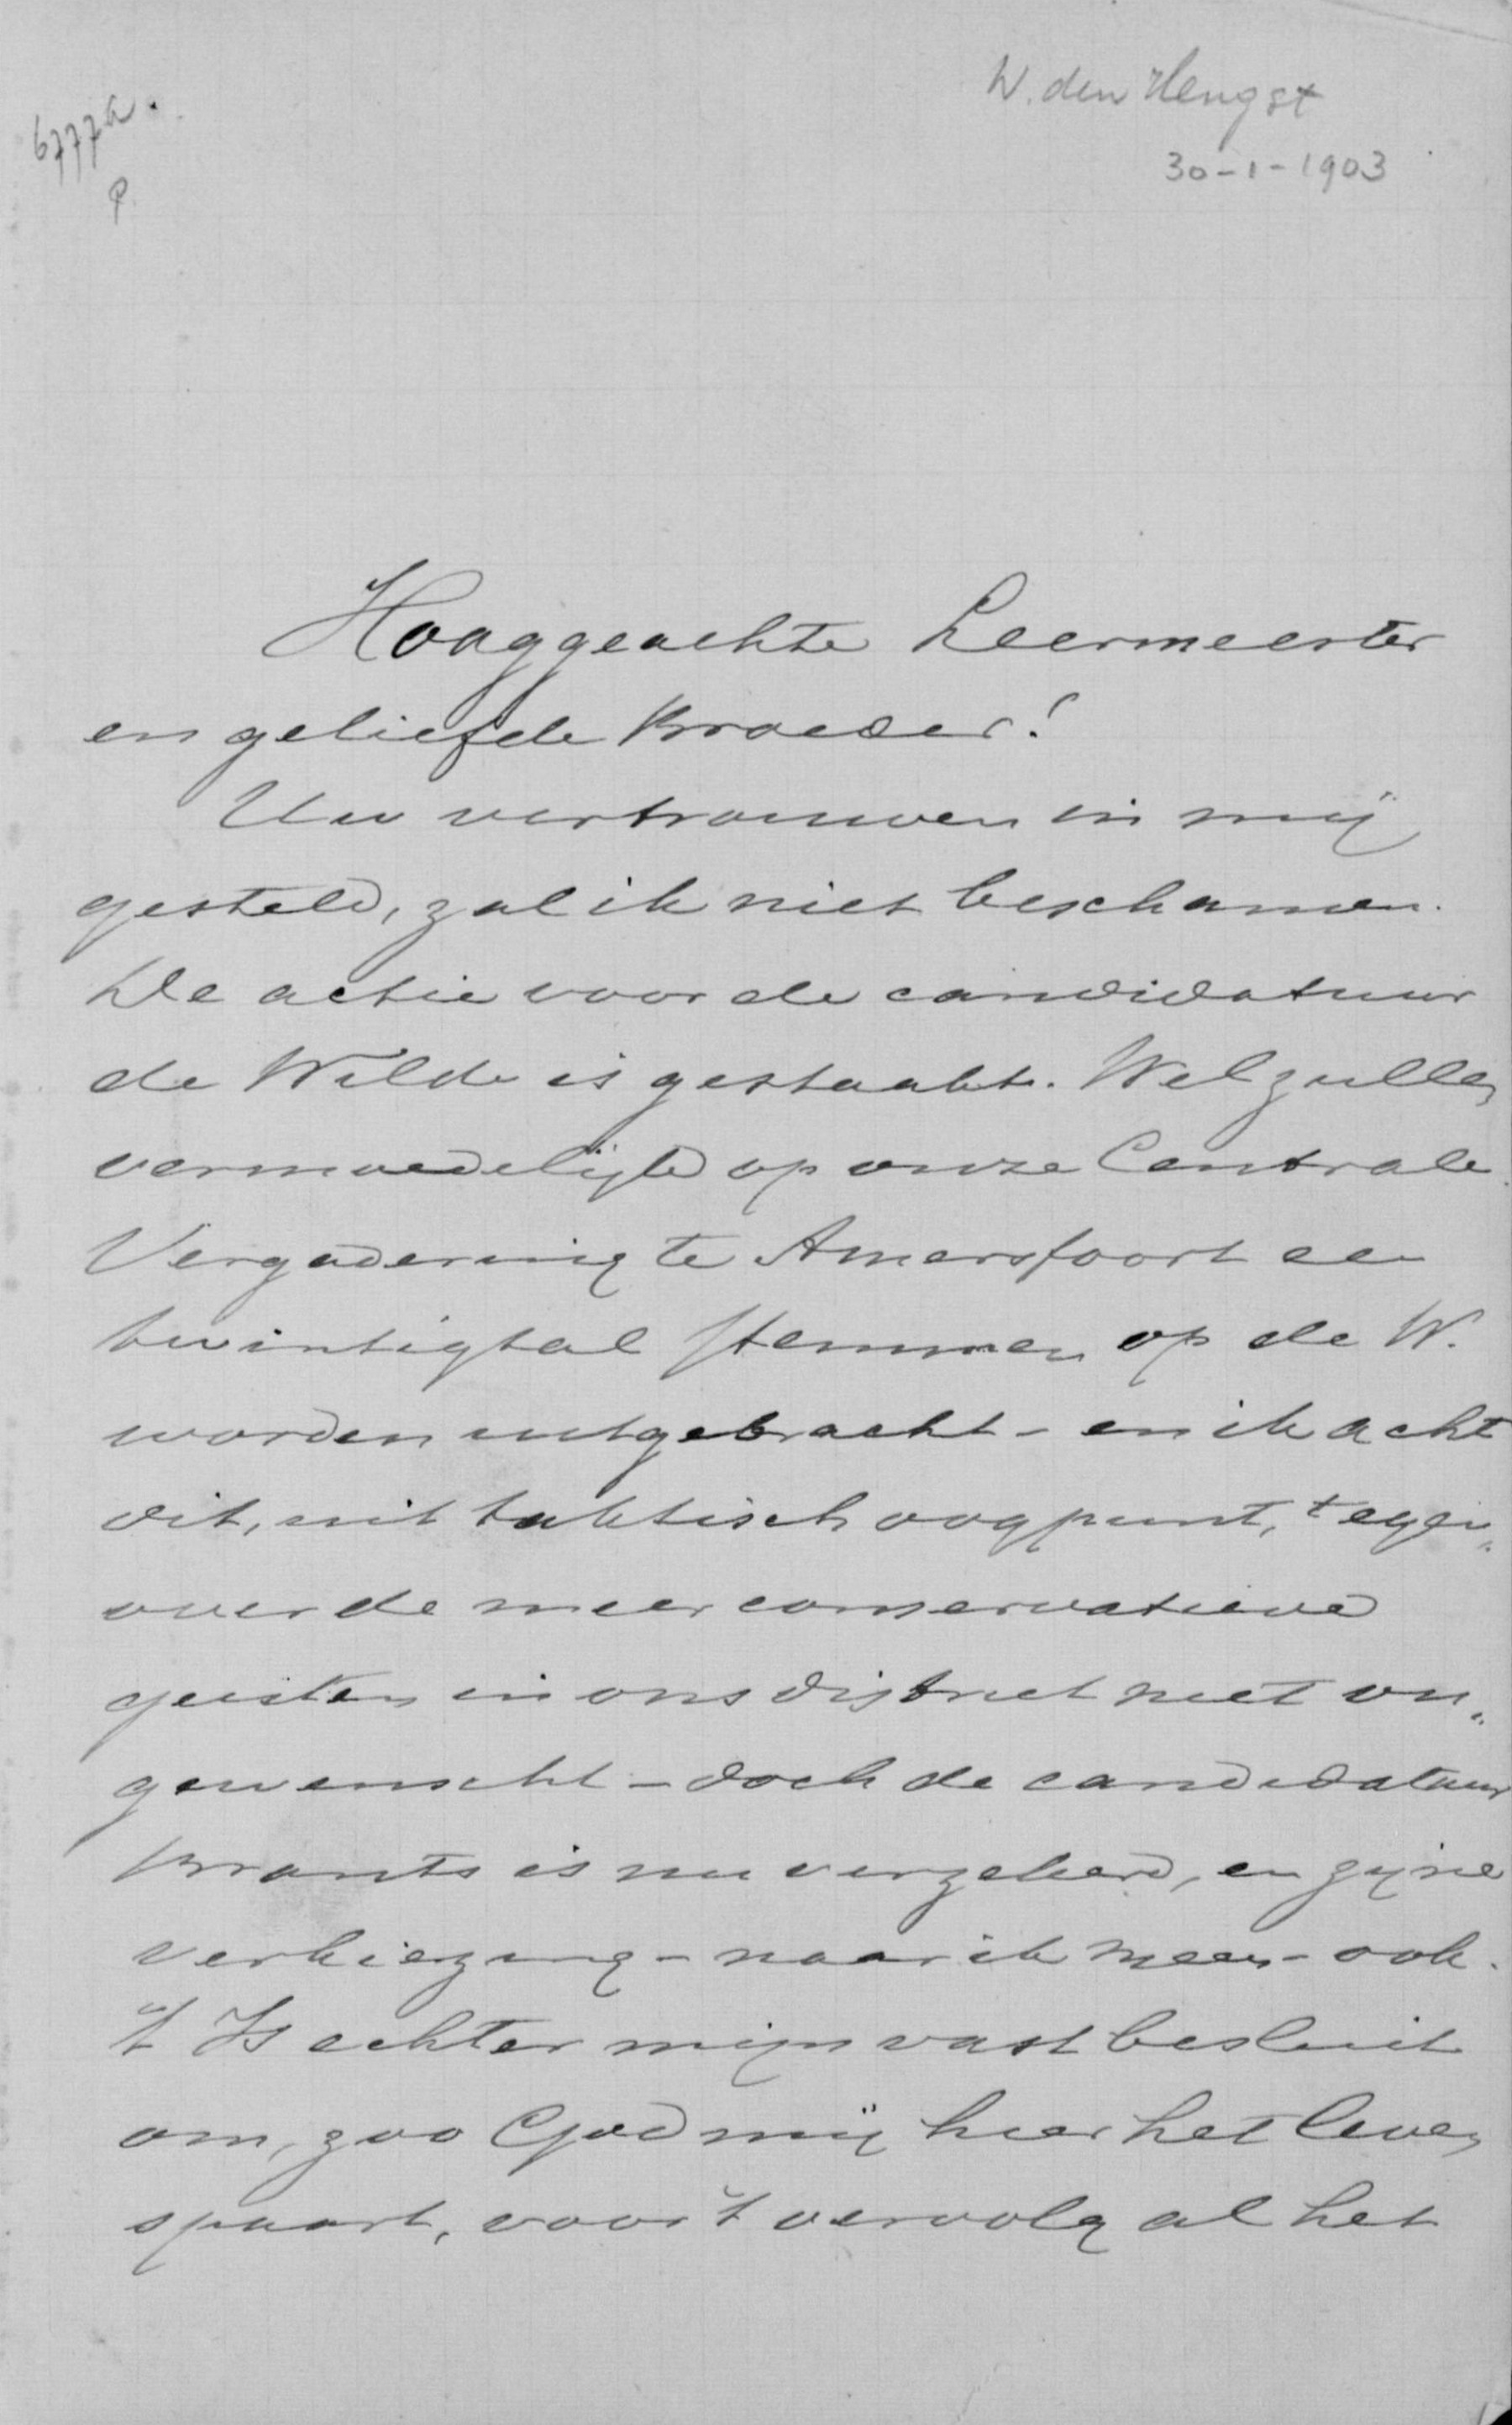 W. den Hengst
30-1-1903
6777a.
P.
Hooggeachte Leermeester
en geliefde Broeder!
Uw vertrouwen in mij
gesteld, zal ik niet beschamen.
De actie voor de candidatuur
de Wilde is gestaakt. Wel zullen
vermoedelijk op onze Centrale
Vergadering te Amersfoort een
twintigtal stemmen op de W.
worden uitgebracht - en ik acht
dit, uit taktisch oogpunt, tegen„
over de meer conservatieve
geesten in ons district niet on„
gewenscht - doch de candidatuur
Brants is nu verzekerd, en zijne
verkiezing - naar ik meen - ook.
't Is echter mijn vast besluit
om, zoo God mij hier het leven
spaart, voor 't vervolg al het